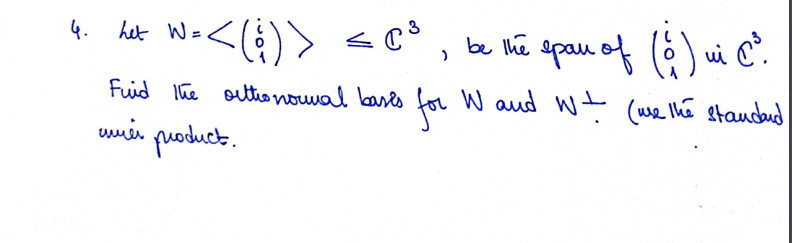 4. Let W = <(i 0 1)> ≤ ℂ³, be the span of (i 0 1) in ℂ³.
Find the orthonormal bases for W and W⊥. (use the standard
inner product.